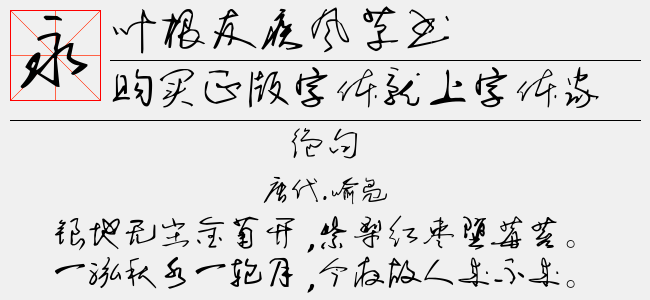 永
叶根友疾风草书
购买正版字体就上字体家
绝句
唐代.喻凫
银地无尘金菊开,紫梨红枣堕莓苔。
一泓秋水一轮月,今夜故人来不来。